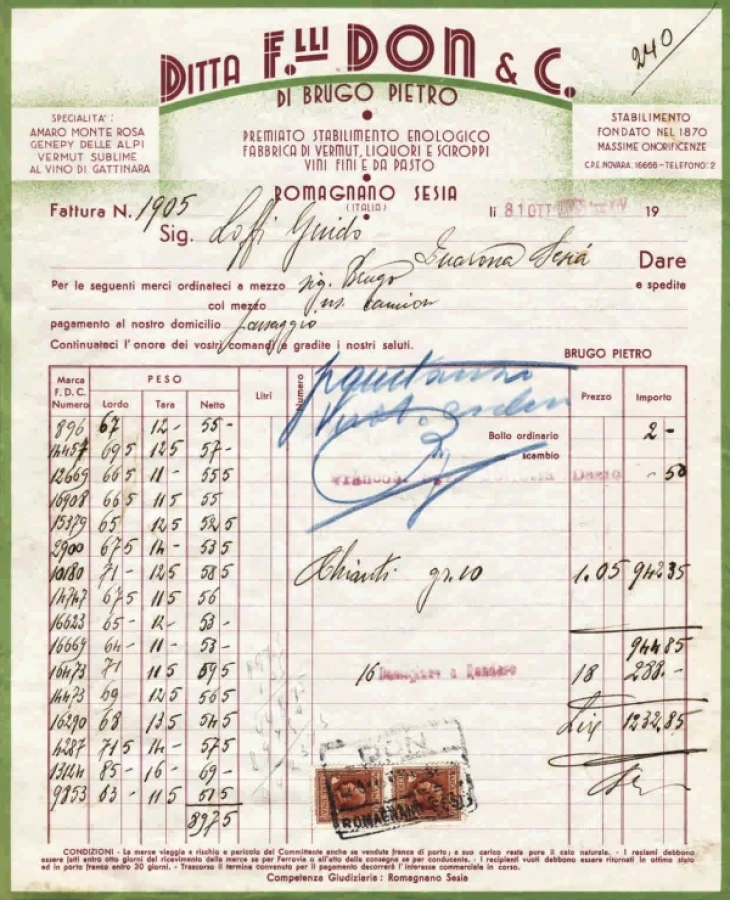 240
DITTA F.LLI DON & C.
DI BRUGO PIETRO
SPECIALITA':
AMARO MONTE ROSA
GENEPY DELLE ALPI
VERMUT SUBLIME
AL VINO DI GATTINARA
PREMIATO STABILIMENTO ENOLOGICO
FABBRICA DI VERMUT, LIQUORI E SCIROPPI
VINI FINI E DA PASTO
STABILIMENTO
FONDATO NEL 1870
MASSIME ONORIFICENZE
C.P.E. NOVARA: 16666 - TELEFONO: 2
ROMAGNANO SESIA
(ITALIA)
Fattura N. 1905
li 8 OTT 19
Sig. Loffi Guido
Quarona Sesia Dare
Per le seguenti merci ordinateci a mezzo sig. Brugo e spedite
col mezzo ns. camion
pagamento al nostro domicilio passaggio
Continuateci l'onore dei vostri comandi e gradite i nostri saluti.
BRUGO PIETRO
Marca F. D. C. Numero PESO Lordo Tara Netto Litri Numero Prezzo Importo
896 67 12 - 55 -
14457 69 5 12 5 57 - Bollo ordinario 2 -
12669 66 5 11 - 55 5 scambio - 50
16908 66 5 11 5 55
15379 65 12 5 52 5
2900 67 5 14 - 53 5
10180 71 - 12 5 58 5 Chianti gr. 10 1.05 942 35
14747 67 5 11 5 56
16623 65 - 12 - 53 -
16669 64 - 11 - 53 - 944 85
16473 71 11 5 59 5 16 Damigiane a Rendere 18 288. -
14473 69 12 5 56 5
16290 68 13 5 54 5 Lire 1232,85
4287 71 5 14 - 57 5
13124 85 - 16 - 69 -
9853 63 - 11 5 51 5
897 5
DON
ROMAGNANO SESIA
CONDIZIONI - La merce viaggia a rischio e pericolo del Committente anche se venduta franca di porto; a suo carico resta pure il calo naturale. - I reclami debbono
essere fatti entro otto giorni dal ricevimento della merce se per Ferrovia o all'atto della consegna se per conducente. - I recipienti vuoti debbono essere ritornati in ottimo stato
ed in porto franco entro 30 giorni. - Trascorso il termine convenuto per il pagamento decorrerà l'interesse commerciale in corso.
Competenza Giudiziaria: Romagnano Sesia